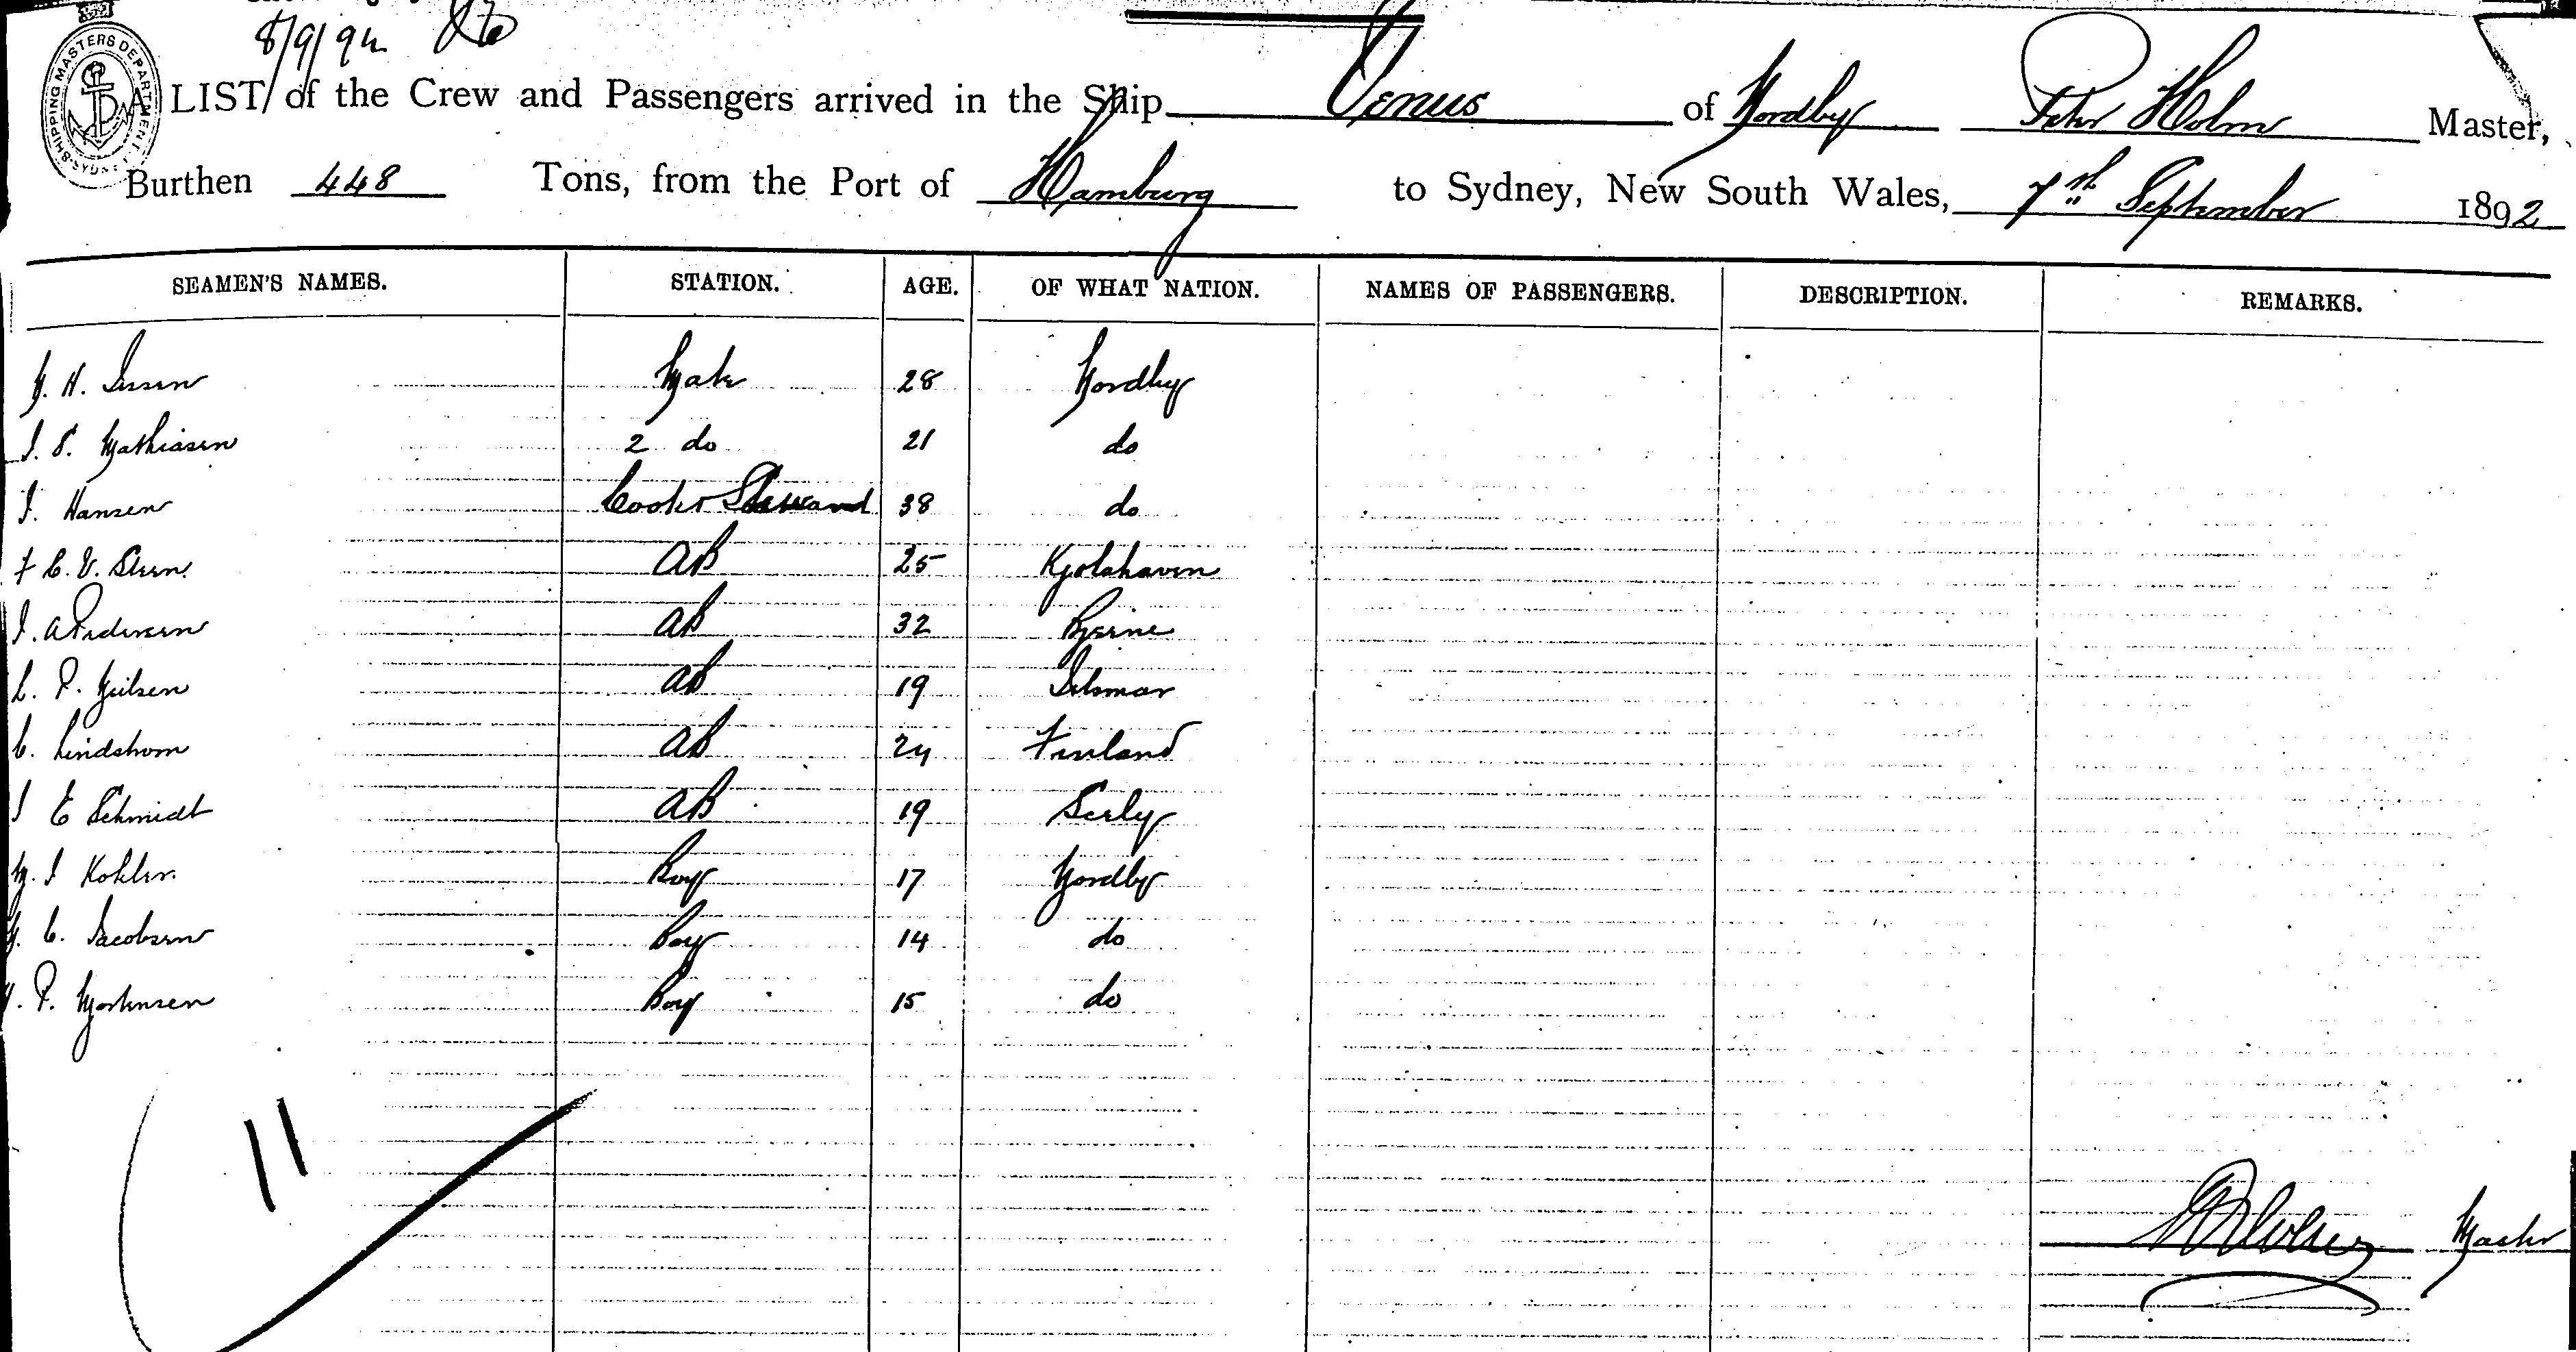 8/9/92
SHIPPING MASTERS DEPARTMENT SYDNEY
A LIST of the Crew and Passengers arrived in the Ship Venus of Nordby Peter Holm Master,
Burthen 448 Tons, from the Port of Hamburg to Sydney, New South Wales, 7th September 1892
SEAMEN'S NAMES. STATION. AGE. OF WHAT NATION. NAMES OF PASSENGERS. DESCRIPTION. REMARKS.
N. H. Issen Mate 28 Nordby
I. S. Mathiasen 2 do 21 do
I. Hansen Cook & Steward 38 do
F C. V. Steen 25 AB
I. A Pedersen AB 32 Bjerne
L. P. Neilsen AB 19
C. Lindstrom AB 24 Finland
I E Schmidt AB 19
M. I Kohler. Boy 17 Nordby
N. C. Jacobsen Boy 14 do
N. P. Mortensen Boy 15 do
11
Master